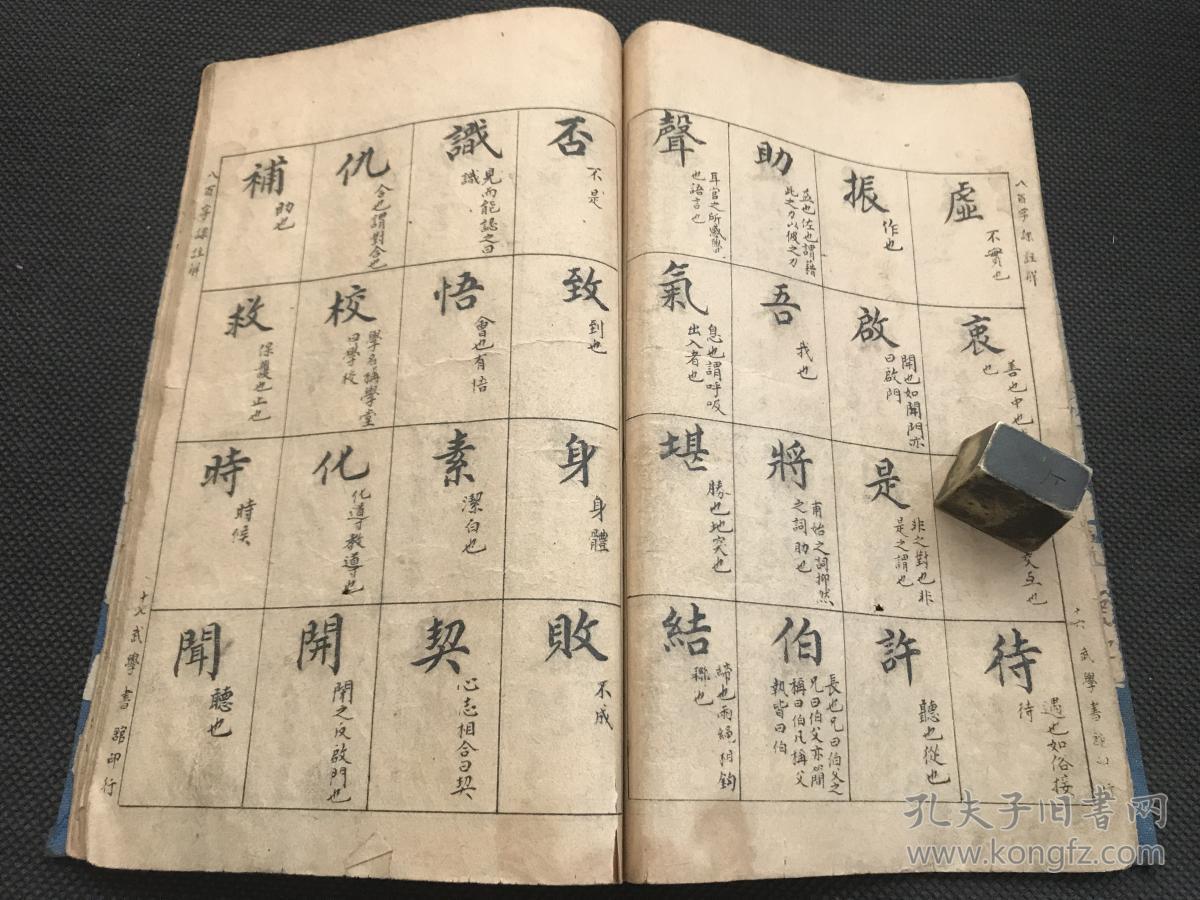 八百字課註解
虛
不實也
衷
善也中也
也
交互也
待
遇也如俗接
待
振
作也
啟
開也如開門亦
曰啟門
是
非之對也非
是之謂也
許
聽也從也
助
益也佐也謂藉
此之力以彼之力
吾
我也
將
甫始之詞抑然
之詞助也
伯
長也兄曰伯父之
兄曰伯父亦簡
稱曰伯凡稱父
執皆曰伯
聲
耳官之所感覺
也語言也
氣
息也謂呼吸
出入者也
堪
勝也地突也
結
締也兩繩相鉤
聯也
十六
武學書館印行
否
不是
致
到也
身
身體
敗
不成
識
見而能誌之曰
識
悟
會也有悟
素
潔白也
契
心志相合曰契
仇
合也謂對合也
校
學名稱學堂
曰學校
化
化導教導也
開
閉之反啟門也
補
助也
救
保護也止也
時
時候
聞
聽也
八百字課註解
十七
武學書館印行
孔夫子旧书网
www.kongfz.com